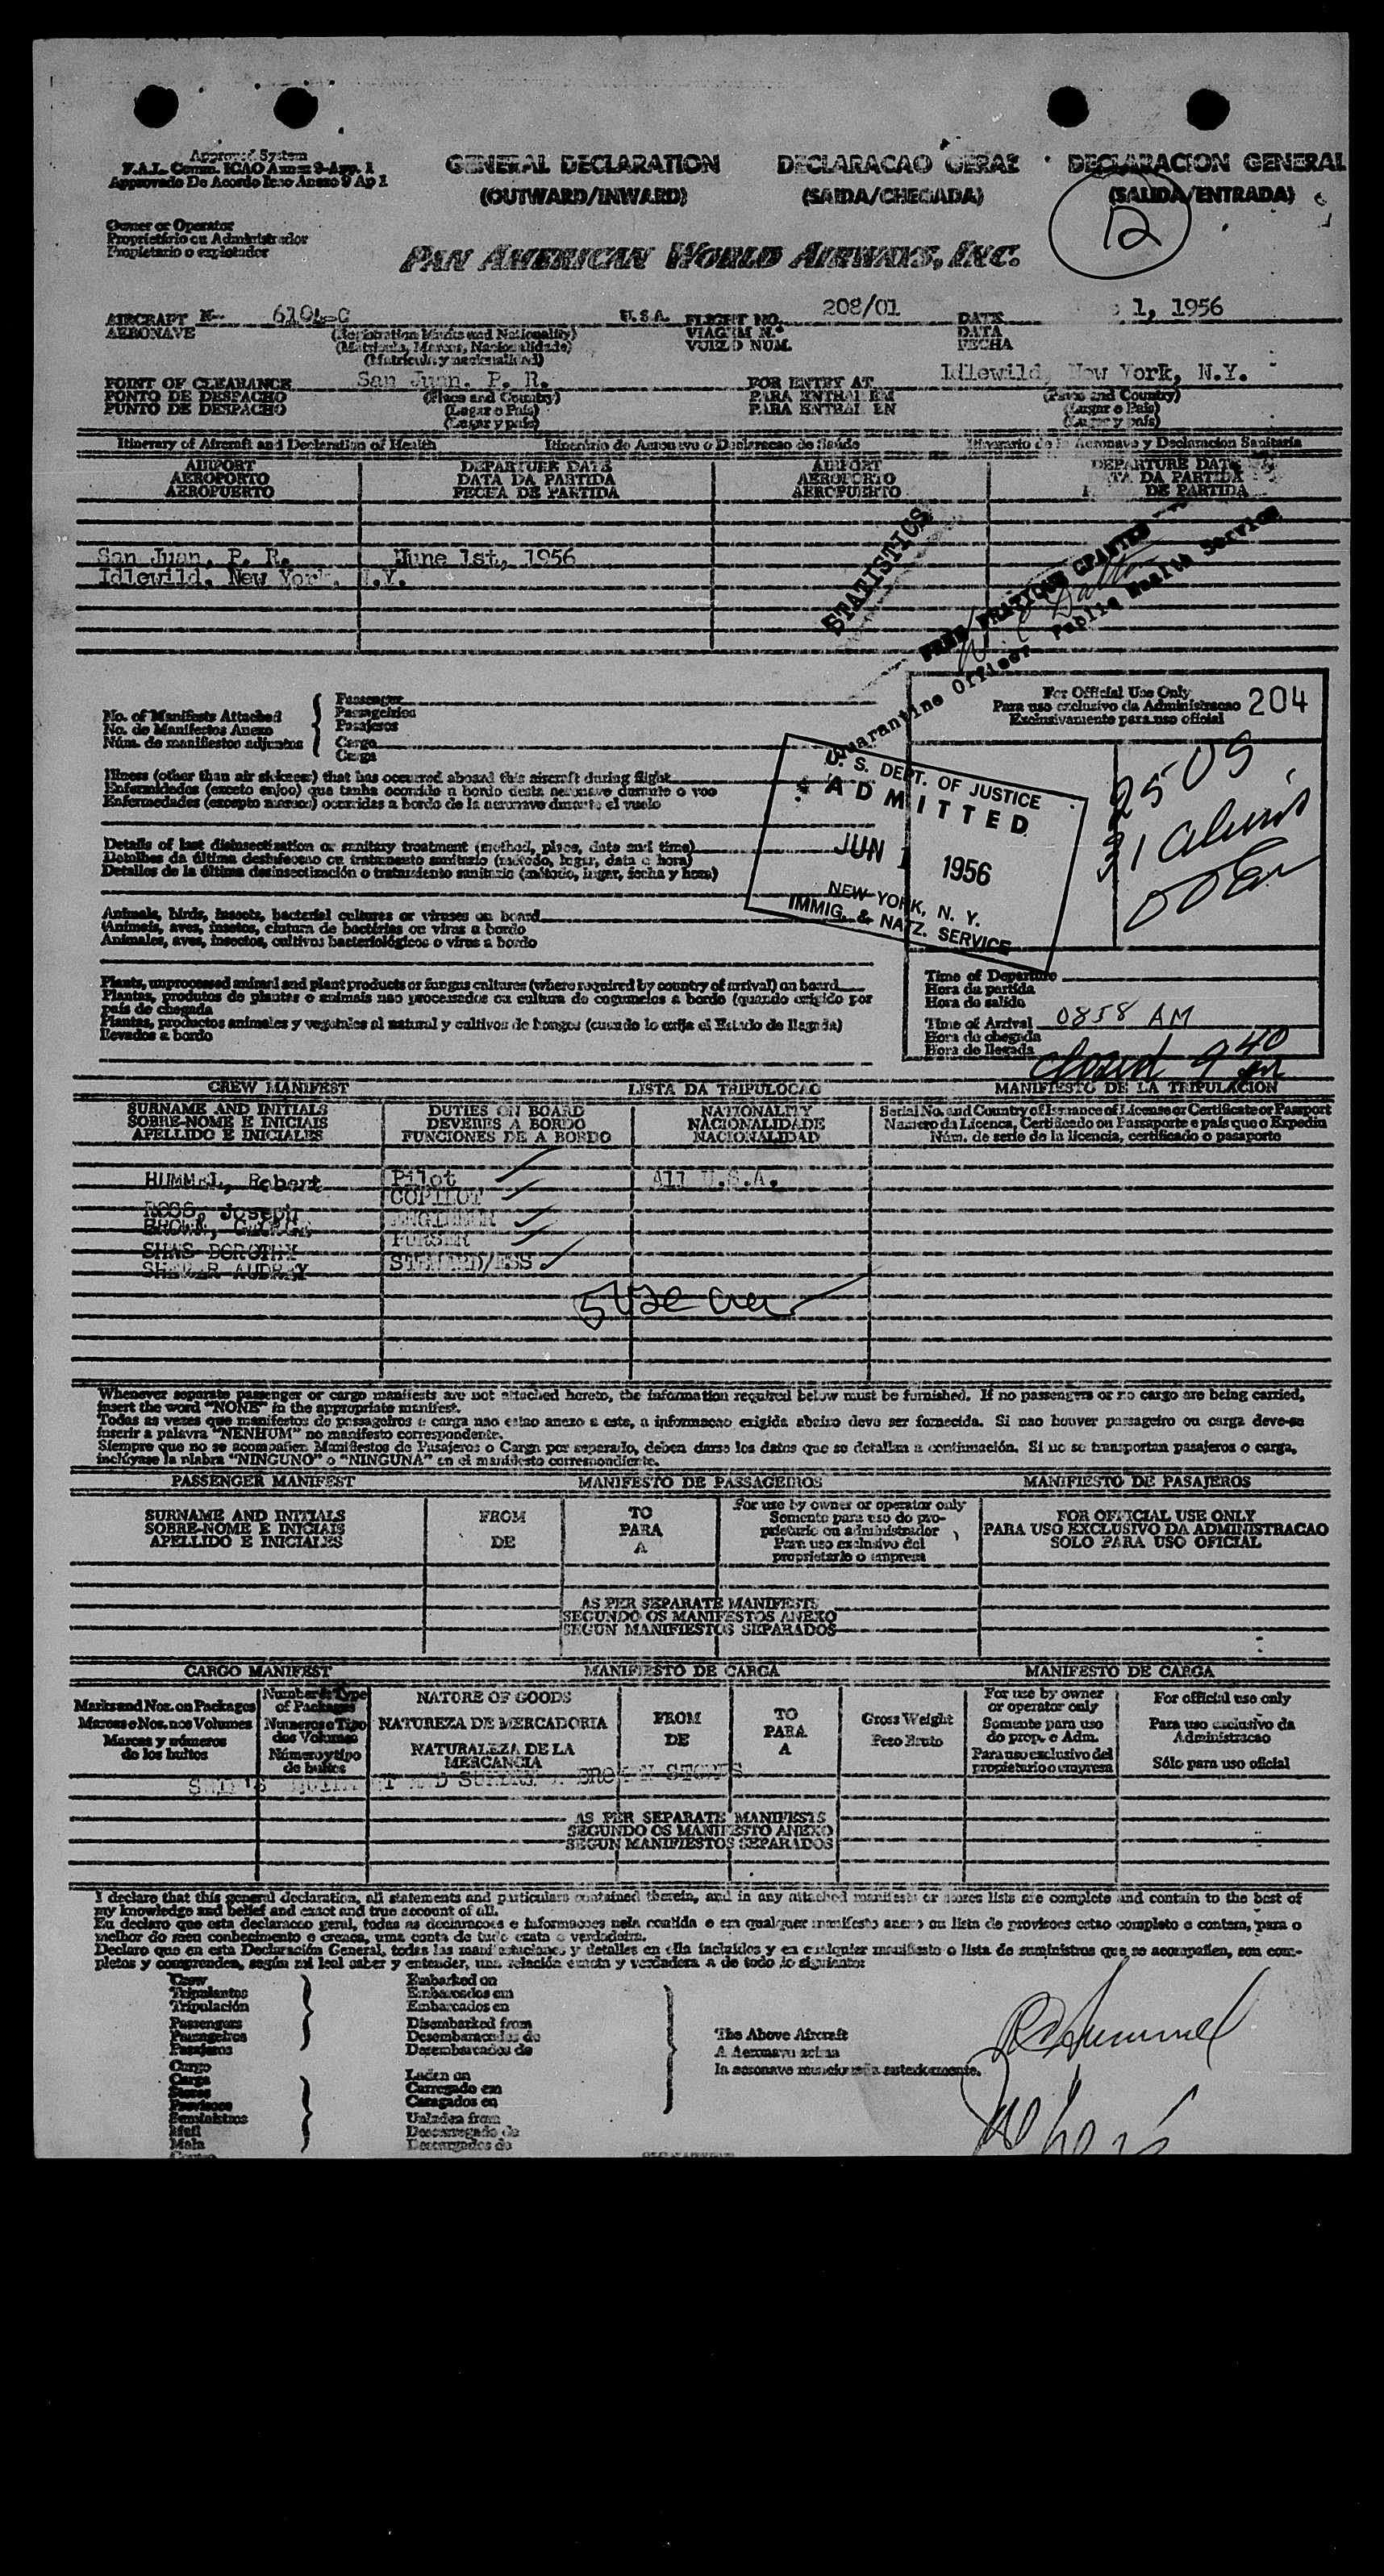 Approved System
F.A.L. Comm. ICAO Annex 9-App. 1
Approvado De Acordo Icao Anexo 9 Ap 1
GENERAL DECLARATION DECLARACAO GERAL DECLARACION GENERAL
(OUTWARD/INWARD) (SAIDA/CHEGADA) (SALIDA/ENTRADA)
12
Owner or Operator
Proprietário ou Administrador
Propietario o explotador
PAN AMERICAN WORLD AIRWAYS, INC.
AIRCRAFT N- U.S.A. FLIGHT NO. 208/01 DATE 1, 1956
AERONAVE (Registration Marks and Nationality) VIAGEM N.º DATA
(Matricula, Marcas, Nacionalidade) VUELO NUM. FECHA
(Matricula y nacionalidad)
POINT OF CLEARANCE San Juan. P. R. FOR ENTRY AT Idlewild, New York, N.Y.
PONTO DE DESPACHO (Place and Country) PARA ENTRAR EM (Place and Country)
PUNTO DE DESPACHO (Lugar o Pais) PARA ENTRAR EN (Lugar o Pais)
(Lugar y pais) (Lugar y pais)
Itinerary of Aircraft and Declaration of Health Itinerário de Aeronave o Declaracao de Saúde Itinerario de la Aeronave y Declaracion Sanitaria
AIRPORT DEPARTURE DATE AIRPORT DEPARTURE DATE
AEROPORTO DATA DA PARTIDA AEROPORTO DATA DA PARTIDA
AEROPUERTO FECHA DE PARTIDA AEROPUERTO DE PARTIDA
San Juan, P. R. June 1st, 1956
Idlewild. New York. N.Y.
STATISTICS
FREE PRATIQUE GRANTED
Quarantine Officer Public Health Service
For Official Use Only 204
Para uso exclusivo da Administracao
Exclusivamente para uso oficial
No. of Manifests Attached Passenger
No. de Manifestos Anexo Passageiros
Núm. de manifiestos adjuntos Pasajeros
Cargo
Carga
Illness (other than air sickness) that has occurred aboard this aircraft during flight
Enfermidades (exceto enjoo) que tenha ocorrido a bordo desta aeronave durante o voo
Enfermedades (excepto mareos) ocurridas a bordo de la aeronave durante el vuelo
U. S. DEPT. OF JUSTICE
ADMITTED
JUN 1 1956
NEW YORK, N. Y.
IMMIG. & NATZ. SERVICE
Details of last disinsectization or sanitary treatment (method, place, date and time)
Detalhes da última desinfeccao ou tratamento sanitario (método, lugar, data e hora)
Detalles de la última desinsectización o tratamiento sanitario (método, lugar, fecha y hora)
Animals, birds, insects, bacterial cultures or viruses on board
Animais, aves, insetos, cultura de bactérias ou virus a bordo
Animales, aves, insectos, cultivos bacteriológicos o virus a bordo
Plants, unprocessed animal and plant products or fungus cultures (where required by country of arrival) on board
Plantas, produtos de plantas e animais nao processados ou cultura de cogumelos a bordo (quando exigido por
pais de chegada
Plantas, productos animales y vegetales al natural y cultivos de hongos (cuando lo exija el Estado de llegada)
llevados a bordo
Time of Departure
Hora da partida
Hora de salida
Time of Arrival 0858 AM
Hora de chegada
Hora de llegada
closed 9 40
CREW MANIFEST LISTA DA TRIPULOCAO MANIFIESTO DE LA TRIPULACION
SURNAME AND INITIALS DUTIES ON BOARD NATIONALITY Serial No. and Country of Issuance of License or Certificate or Passport
SOBRE-NOME E INICIAIS DEVERES A BORDO NACIONALIDADE Numero da Licenca, Certificado ou Passaporte e pais que o Expediu
APELLIDO E INICIALES FUNCIONES DE A BORDO NACIONALIDAD Núm. de serie de la licencia, certificado o pasaporte
HUMMEL, Robert Pilot All U.S.A.
COPILOT
ROSS, Joseph ENGINEER
BROWN, PURSER
DOROTHY STEWARD/ESS
AUDREY
Whenever separate passenger or cargo manifests are not attached hereto, the information required below must be furnished. If no passengers or no cargo are being carried,
insert the word "NONE" in the appropriate manifest.
Todas as vezes que manifestos de passageiros e carga nao estao anexo a este, a informacao exigida abaixo deve ser fornecida. Si nao houver passageiro ou carga deve-se
inserir a palavra "NENHUM" no manifesto correspondente.
Siempre que no se acompañen Manifiestos de Pasajeros o Carga por separado, deben darse los datos que se detallan a continuación. Si no se transportan pasajeros o carga,
inclúyase la plabra "NINGUNO" o "NINGUNA" en el manifiesto correspondiente.
PASSENGER MANIFEST MANIFESTO DE PASSAGEIROS MANIFIESTO DE PASAJEROS
SURNAME AND INITIALS FROM TO For use by owner or operator only FOR OFFICIAL USE ONLY
SOBRE-NOME E INICIAIS DE PARA Somente para uso do pro- PARA USO EXCLUSIVO DA ADMINISTRACAO
APELLIDO E INICIALES A prietario ou administrador SOLO PARA USO OFICIAL
Para uso exclusivo del
proprietario o empresa
AS PER SEPARATE MANIFESTS
SEGUNDO OS MANIFESTOS ANEXO
SEGUN MANIFIESTOS SEPARADOS
CARGO MANIFEST MANIFIESTO DE CARGA MANIFESTO DE CARGA
Marks and Nos. on Packages Number & Type of Packages NATORE OF GOODS FROM TO Gross Weight For use by owner or operator only For official use only
Marcas e Nos. nos Volumes Numeros e Tipo dos Volumes NATUREZA DE MERCADORIA DE PARA Peso Bruto Somente para uso do prop. e Adm. Para uso exclusivo da Administracao
Marcas y números de los bultos Número y tipo de bultos NATURALEZA DE LA MERCANCIA A Para uso exclusivo del propietario o empresa Sólo para uso oficial
AS PER SEPARATE MANIFESTS
SEGUNDO OS MANIFESTO ANEXO
SEGUN MANIFIESTOS SEPARADOS
I declare that this general declaration, all statements and particulars contained therein, and in any attached manifests or stores lists are complete and contain to the best of
my knowledge and belief and exact and true account of all.
Eu declaro que esta declaracao geral, todas as declaracoes e informacoes nela contida e em qualquer manifesto anexo ou lista de provisoes estao completo e contem, para o
melhor do meu conhecimento e crenca, uma conta de tudo exata e verdadeira.
Declaro que en esta Declaración General, todas las manifestaciones y detalles en ella incluidos y en cualquier manifiesto o lista de suministros que se acompañen, son com-
pletos y comprenden, según mi leal saber y entender, una relación exacta y verdadera a de todo lo siguiente:
Crew Embarked on
Tripulantes Embarcados em
Tripulación Embarcados en
Passengers Disembarked from
Passageiros Desembarcados de
Pasajeros Desembarcados de
The Above Aircraft
A Aeronave acima
la aeronave mencionada anteriormente.
Cargo Laden on
Carga Carregado em
Stores Cargados en
Provisoes
Suministros Unladen from
Mail Descarregado de
Mala Descargados de